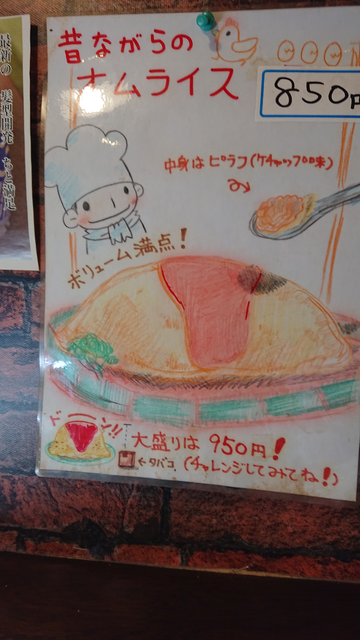 昔ながらの
オムライス
850円
中身はピラフ(ケチャップ味)
ボリューム満点!
ドーン!!
大盛りは 950円!
←タバコ (チャレンジしてみてね!)
最新の